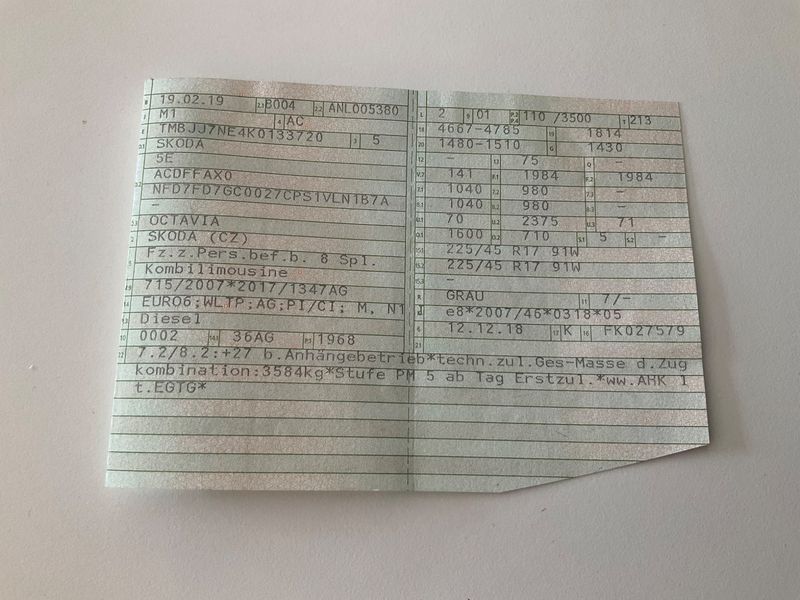 19.02.19 8004 ANL005380
M1 AC
TMBJJ7NE4K0133720 5
SKODA
5E
ACDFFAX0
NFD7FD7GC0027CPS1VLN1B7A
–
OCTAVIA
SKODA (CZ)
Fz.z.Pers.bef.b. 8 Spl.
Kombilimousine
715/2007*2017/1347AG
EURO6;WLTP;AG;PI/CI; M, N1 I
Diesel
0002 36AG 1968
L 2 9 01 P.2 P.4 110 /3500 T 213
18 4667-4785 19 1814
20 1480-1510 G 1430
12 – 13 75 Q –
V.7 141 F.1 1984 F.2 1984
7.1 1040 7.2 980 7.3 –
8.1 1040 8.2 980 8.3 –
U.1 70 U.2 2375 U.3 71
O.1 1600 O.2 710 S.1 5 S.2 –
15.1 225/45 R17 91W
15.2 225/45 R17 91W
15.3 –
R GRAU 11 7/–
K e8*2007/46*0318*05
6 12.12.18 17 K 16 FK027579
21
22 7.2/8.2:+27 b.Anhängebetrieb*techn.zul.Ges-Masse d.Zug
kombination:3584kg*Stufe PM 5 ab Tag Erstzul.*ww.AHK l
t.EGTG*